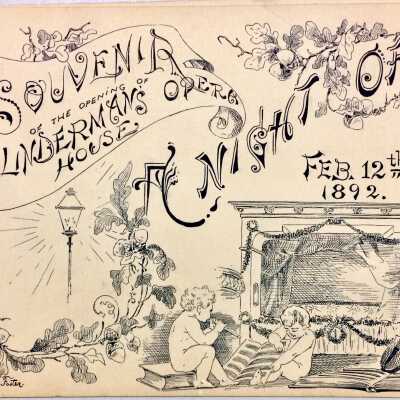 SOUVENIR
OF THE OPENING OF
LINDERMAN'S OPERA
HOUSE.
A NIGHT OF
FEB. 12th
1892.
Foster